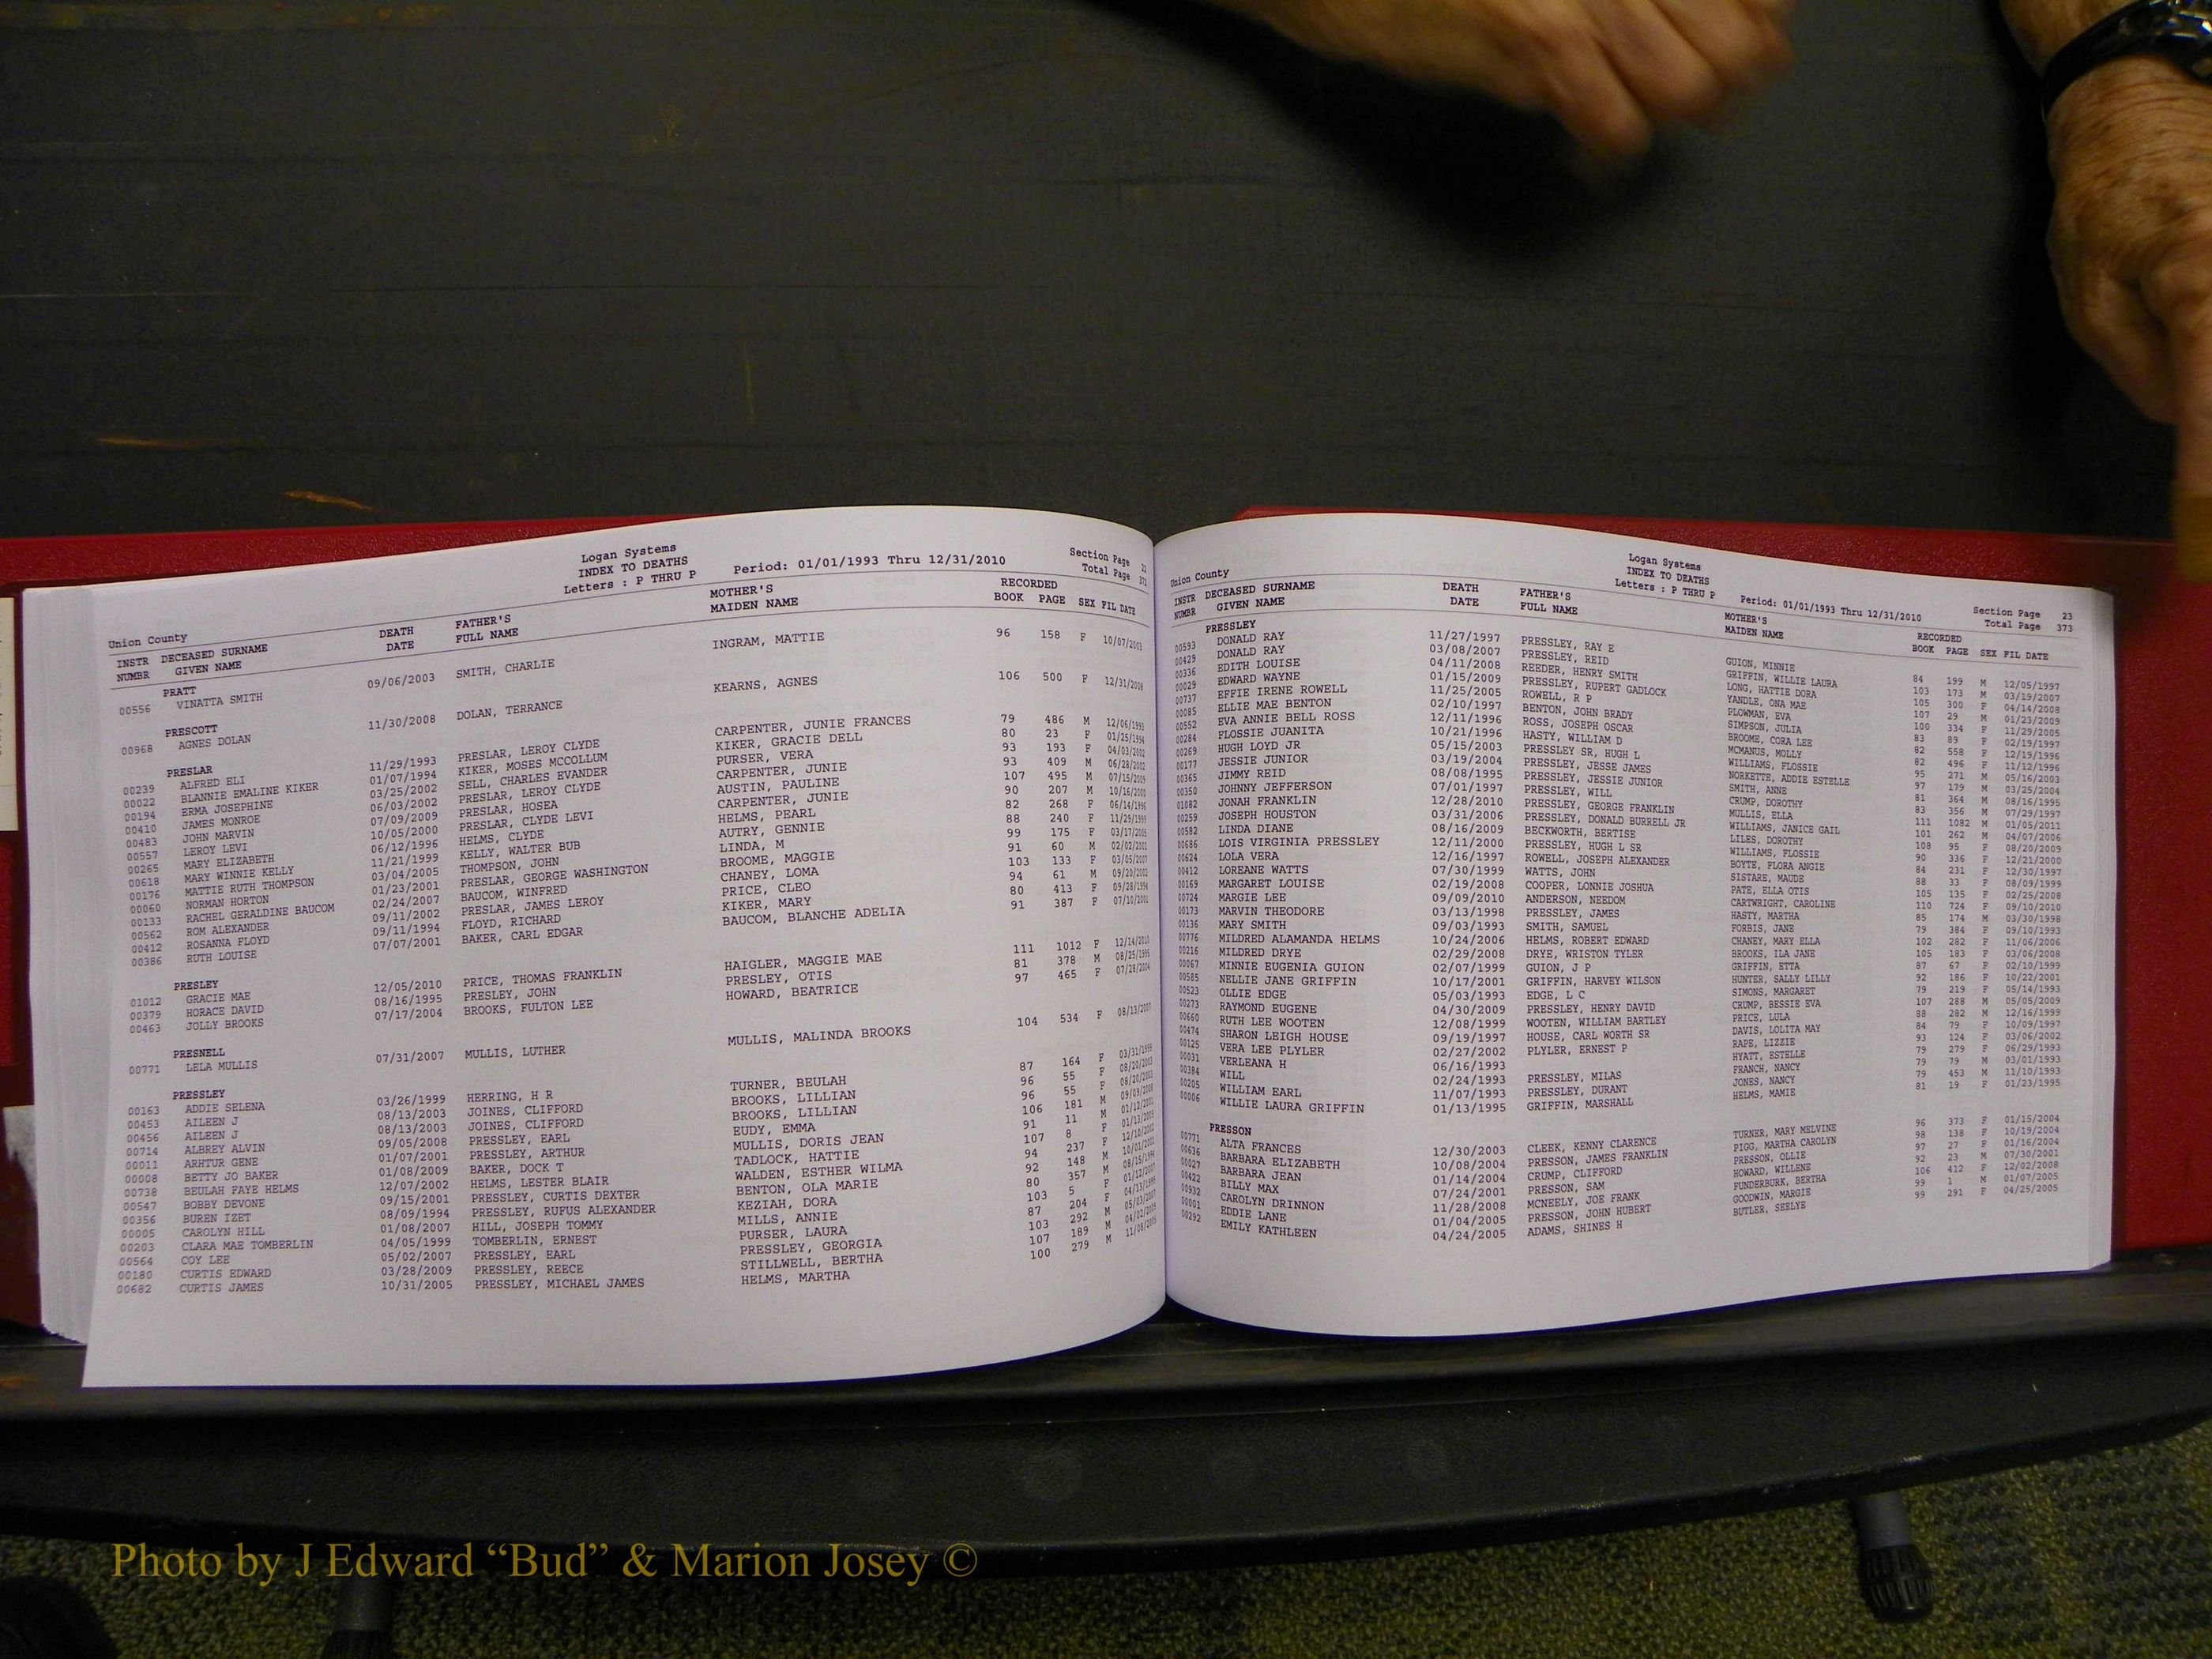 Union County
Logan Systems
INDEX TO DEATHS
Letters : P THRU P Period: 01/01/1993 Thru 12/31/2010
Section Page
Total Page
INSTR NUMBR DECEASED SURNAME GIVEN NAME DEATH DATE FATHER'S FULL NAME MOTHER'S MAIDEN NAME RECORDED BOOK PAGE SEX FIL DATE
PRATT
00556 VINATTA SMITH 09/06/2003 SMITH, CHARLIE INGRAM, MATTIE 96 158 F 10/07/2003
PRESCOTT
00968 AGNES DOLAN 11/30/2008 DOLAN, TERRANCE KEARNS, AGNES 106 500 F 12/31/2008
PRESLAR
00239 ALFRED ELI 11/29/1993 PRESLAR, LEROY CLYDE CARPENTER, JUNIE FRANCES 79 486 M 12/06/1993
00022 BLANNIE EMALINE KIKER 01/07/1994 KIKER, MOSES MCCOLLUM KIKER, GRACIE DELL 80 23 F 01/25/1994
00194 ERMA JOSEPHINE 03/25/2002 SELL, CHARLES EVANDER PURSER, VERA 93 193 F 04/03/2002
00410 JAMES MONROE 06/03/2002 PRESLAR, LEROY CLYDE CARPENTER, JUNIE 93 409 M 06/28/2002
00483 JOHN MARVIN 07/09/2009 PRESLAR, HOSEA AUSTIN, PAULINE 107 495 M 07/15/2009
00557 LEROY LEVI 10/05/2000 PRESLAR, CLYDE LEVI CARPENTER, JUNIE 90 207 M 10/16/2000
00265 MARY ELIZABETH 06/12/1996 HELMS, CLYDE HELMS, PEARL 82 268 F 06/14/1996
00618 MARY WINNIE KELLY 11/21/1999 KELLY, WALTER BUB AUTRY, GENNIE 88 240 F 11/29/1999
00176 MATTIE RUTH THOMPSON 03/04/2005 THOMPSON, JOHN LINDA, M 99 175 F 03/17/2005
00060 NORMAN HORTON 01/23/2001 PRESLAR, GEORGE WASHINGTON BROOME, MAGGIE 91 60 M 02/02/2001
00133 RACHEL GERALDINE BAUCOM 02/24/2007 BAUCOM, WINFRED CHANEY, LOMA 103 133 F 03/05/2007
00562 ROM ALEXANDER 09/11/2002 PRESLAR, JAMES LEROY PRICE, CLEO 94 61 M 09/20/2002
00412 ROSANNA FLOYD 09/11/1994 FLOYD, RICHARD KIKER, MARY 80 413 F 09/28/1994
00386 RUTH LOUISE 07/07/2001 BAKER, CARL EDGAR BAUCOM, BLANCHE ADELIA 91 387 F 07/10/2001
PRESLEY
01012 GRACIE MAE 12/05/2010 PRICE, THOMAS FRANKLIN HAIGLER, MAGGIE MAE 111 1012 F 12/14/2010
00379 HORACE DAVID 08/16/1995 PRESLEY, JOHN PRESLEY, OTIS 81 378 M 08/25/1995
00463 JOLLY BROOKS 07/17/2004 BROOKS, FULTON LEE HOWARD, BEATRICE 97 465 F 07/28/2004
PRESNELL
00771 LELA MULLIS 07/31/2007 MULLIS, LUTHER MULLIS, MALINDA BROOKS 104 534 F 08/13/2007
PRESSLEY
00163 ADDIE SELENA 03/26/1999 HERRING, H R TURNER, BEULAH 87 164 F 03/31/1999
00453 AILEEN J 08/13/2003 JOINES, CLIFFORD BROOKS, LILLIAN 96 55 F 08/20/2003
00456 AILEEN J 08/13/2003 JOINES, CLIFFORD BROOKS, LILLIAN 96 55 F 08/20/2003
00714 ALBREY ALVIN 09/05/2008 PRESSLEY, EARL EUDY, EMMA 106 181 M 09/09/2008
00011 ARHTUR GENE 01/07/2001 PRESSLEY, ARTHUR MULLIS, DORIS JEAN 91 11 M 01/12/2001
00008 BETTY JO BAKER 01/08/2009 BAKER, DOCK T TADLOCK, HATTIE 107 8 F 01/13/2009
00738 BEULAH FAYE HELMS 12/07/2002 HELMS, LESTER BLAIR WALDEN, ESTHER WILMA 94 237 F 12/10/2002
00547 BOBBY DEVONE 09/15/2001 PRESSLEY, CURTIS DEXTER BENTON, OLA MARIE 92 148 M 10/01/2001
00356 BUREN IZET 08/09/1994 PRESSLEY, RUFUS ALEXANDER KEZIAH, DORA 80 357 M 08/15/1994
00005 CAROLYN HILL 01/08/2007 HILL, JOSEPH TOMMY MILLS, ANNIE 103 5 F 01/12/2007
00203 CLARA MAE TOMBERLIN 04/05/1999 TOMBERLIN, ERNEST PURSER, LAURA 87 204 F 04/13/1999
00564 COY LEE 05/02/2007 PRESSLEY, EARL PRESSLEY, GEORGIA 103 292 M 05/03/2007
00180 CURTIS EDWARD 03/28/2009 PRESSLEY, REECE STILLWELL, BERTHA 107 189 M 04/02/2009
00682 CURTIS JAMES 10/31/2005 PRESSLEY, MICHAEL JAMES HELMS, MARTHA 100 279 M 11/08/2005
Union County
Logan Systems
INDEX TO DEATHS
Letters : P THRU P Period: 01/01/1993 Thru 12/31/2010
Section Page 23
Total Page 373
INSTR NUMBR DECEASED SURNAME GIVEN NAME DEATH DATE FATHER'S FULL NAME MOTHER'S MAIDEN NAME RECORDED BOOK PAGE SEX FIL DATE
PRESSLEY
00593 DONALD RAY 11/27/1997 PRESSLEY, RAY E GUION, MINNIE 84 199 M 12/05/1997
00429 DONALD RAY 03/08/2007 PRESSLEY, REID GRIFFIN, WILLIE LAURA 103 173 M 03/19/2007
00336 EDITH LOUISE 04/11/2008 REEDER, HENRY SMITH LONG, HATTIE DORA 105 300 F 04/14/2008
00029 EDWARD WAYNE 01/15/2009 PRESSLEY, RUPERT GADLOCK YANDLE, ONA MAE 107 29 M 01/23/2009
00737 EFFIE IRENE ROWELL 11/25/2005 ROWELL, R P PLOWMAN, EVA 100 334 F 11/29/2005
00085 ELLIE MAE BENTON 02/10/1997 BENTON, JOHN BRADY SIMPSON, JULIA 83 89 F 02/19/1997
00552 EVA ANNIE BELL ROSS 12/11/1996 ROSS, JOSEPH OSCAR BROOME, CORA LEE 82 558 F 12/19/1996
00284 FLOSSIE JUANITA 10/21/1996 HASTY, WILLIAM D MCMANUS, MOLLY 82 496 F 11/12/1996
00269 HUGH LOYD JR 05/15/2003 PRESSLEY SR, HUGH L WILLIAMS, FLOSSIE 95 271 M 05/16/2003
00177 JESSIE JUNIOR 03/19/2004 PRESSLEY, JESSE JAMES NORKETTE, ADDIE ESTELLE 97 179 M 03/25/2004
00365 JIMMY REID 08/08/1995 PRESSLEY, JESSIE JUNIOR SMITH, ANNE 81 364 M 08/16/1995
00350 JOHNNY JEFFERSON 07/01/1997 PRESSLEY, WILL CRUMP, DOROTHY 83 356 M 07/29/1997
01082 JONAH FRANKLIN 12/28/2010 PRESSLEY, GEORGE FRANKLIN MULLIS, ELLA 111 1082 M 01/05/2011
00259 JOSEPH HOUSTON 03/31/2006 PRESSLEY, DONALD BURRELL JR WILLIAMS, JANICE GAIL 101 262 M 04/07/2006
00582 LINDA DIANE 08/16/2009 BECKWORTH, BERTISE LILES, DOROTHY 108 95 F 08/20/2009
00686 LOIS VIRGINIA PRESSLEY 12/11/2000 PRESSLEY, HUGH L SR WILLIAMS, FLOSSIE 90 336 F 12/21/2000
00624 LOLA VERA 12/16/1997 ROWELL, JOSEPH ALEXANDER BOYTE, FLORA ANGIE 84 231 F 12/30/1997
00412 LOREANE WATTS 07/30/1999 WATTS, JOHN SISTARE, MAUDE 88 33 F 08/09/1999
00169 MARGARET LOUISE 02/19/2008 COOPER, LONNIE JOSHUA PATE, ELLA OTIS 105 135 F 02/25/2008
00724 MARGIE LEE 09/09/2010 ANDERSON, NEEDOM CARTWRIGHT, CAROLINE 110 724 F 09/10/2010
00173 MARVIN THEODORE 03/13/1998 PRESSLEY, JAMES HASTY, MARTHA 85 174 M 03/30/1998
00136 MARY SMITH 09/03/1993 SMITH, SAMUEL FORBIS, JANE 79 384 F 09/10/1993
00776 MILDRED ALAMANDA HELMS 10/24/2006 HELMS, ROBERT EDWARD CHANEY, MARY ELLA 102 282 F 11/06/2006
00216 MILDRED DRYE 02/29/2008 DRYE, WRISTON TYLER BROOKS, ILA JANE 105 183 F 03/06/2008
00067 MINNIE EUGENIA GUION 02/07/1999 GUION, J P GRIFFIN, ETTA 87 67 F 02/10/1999
00585 NELLIE JANE GRIFFIN 10/17/2001 GRIFFIN, HARVEY WILSON HUNTER, SALLY LILLY 92 186 F 10/22/2001
00523 OLLIE EDGE 05/03/1993 EDGE, L C SIMONS, MARGARET 79 219 F 05/14/1993
00273 RAYMOND EUGENE 04/30/2009 PRESSLEY, HENRY DAVID CRUMP, BESSIE EVA 107 288 M 05/05/2009
00660 RUTH LEE WOOTEN 12/08/1999 WOOTEN, WILLIAM BARTLEY PRICE, LULA 88 282 M 12/16/1999
00474 SHARON LEIGH HOUSE 09/19/1997 HOUSE, CARL WORTH SR DAVIS, LOLITA MAY 84 79 F 10/09/1997
00125 VERA LEE PLYLER 02/27/2002 PLYLER, ERNEST P RAPE, LIZZIE 93 124 F 03/06/2002
00031 VERLEANA H 06/16/1993 HYATT, ESTELLE 79 279 F 06/29/1993
00384 WILL 02/24/1993 PRESSLEY, MILAS FRANCH, NANCY 79 79 M 03/01/1993
00205 WILLIAM EARL 11/07/1993 PRESSLEY, DURANT JONES, NANCY 79 453 M 11/10/1993
00006 WILLIE LAURA GRIFFIN 01/13/1995 GRIFFIN, MARSHALL HELMS, MAMIE 81 19 F 01/23/1995
PRESSON
00771 ALTA FRANCES 12/30/2003 CLEEK, KENNY CLARENCE TURNER, MARY MELVINE 96 373 F 01/15/2004
00636 BARBARA ELIZABETH 10/08/2004 PRESSON, JAMES FRANKLIN PIGG, MARTHA CAROLYN 98 138 F 10/19/2004
00027 BARBARA JEAN 01/14/2004 CRUMP, CLIFFORD PRESSON, OLLIE 97 27 F 01/16/2004
00422 BILLY MAX 07/24/2001 PRESSON, SAM HOWARD, WILLENE 92 23 M 07/30/2001
00932 CAROLYN DRINNON 11/28/2008 MCNEELY, JOE FRANK FUNDERBURK, BERTHA 106 412 F 12/02/2008
00001 EDDIE LANE 01/04/2005 PRESSON, JOHN HUBERT GOODWIN, MARGIE 99 1 M 01/07/2005
00292 EMILY KATHLEEN 04/24/2005 ADAMS, SHINES H BUTLER, SEELYE 99 291 F 04/25/2005
Photo by J Edward “Bud” & Marion Josey ©